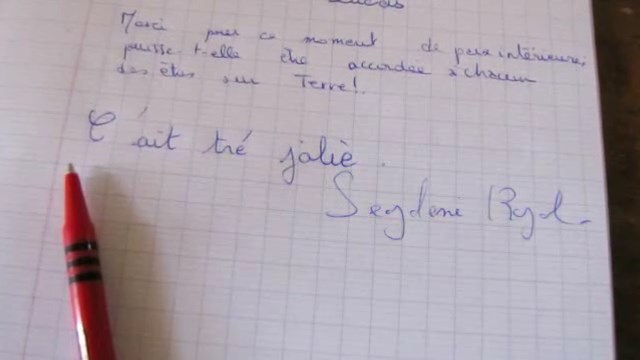 Lucas
Merci pour ce moment de paix intérieure,
puisse t-elle être accordée à chacun
des êtres sur Terre!.
C'ait tré joliè.
Seydene